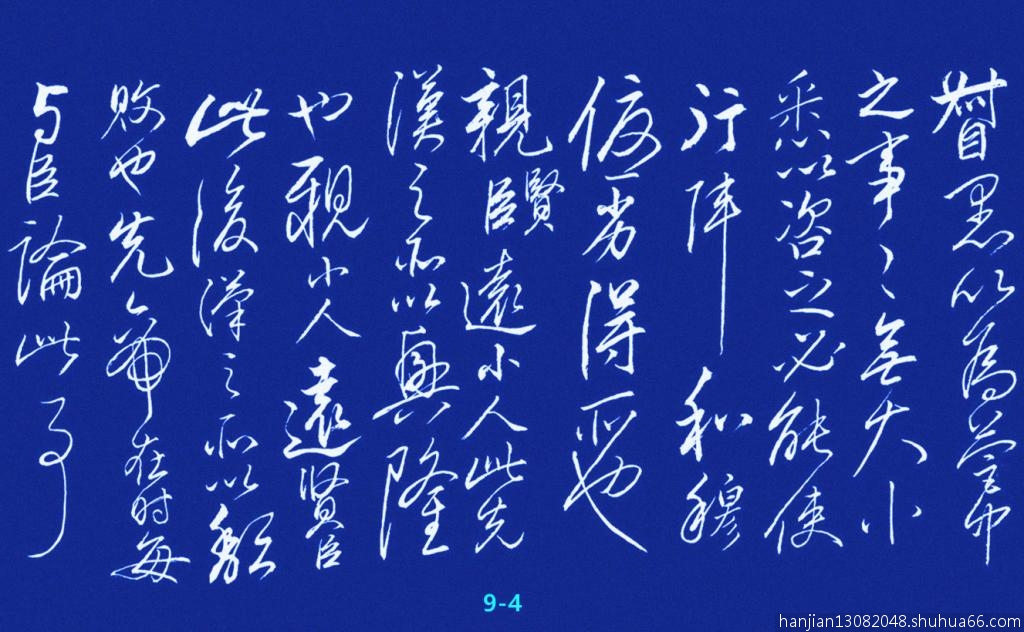 督愚以為營中
之事〻無大小
悉以咨之必能使
行陣和穆
優劣得所也
親賢臣遠小人此先
漢之所以興隆
也親小人遠賢臣
此後漢之所以頹
败也先帝在时每
与臣論此事
9-4
hanjian13082048.shuhua66.com